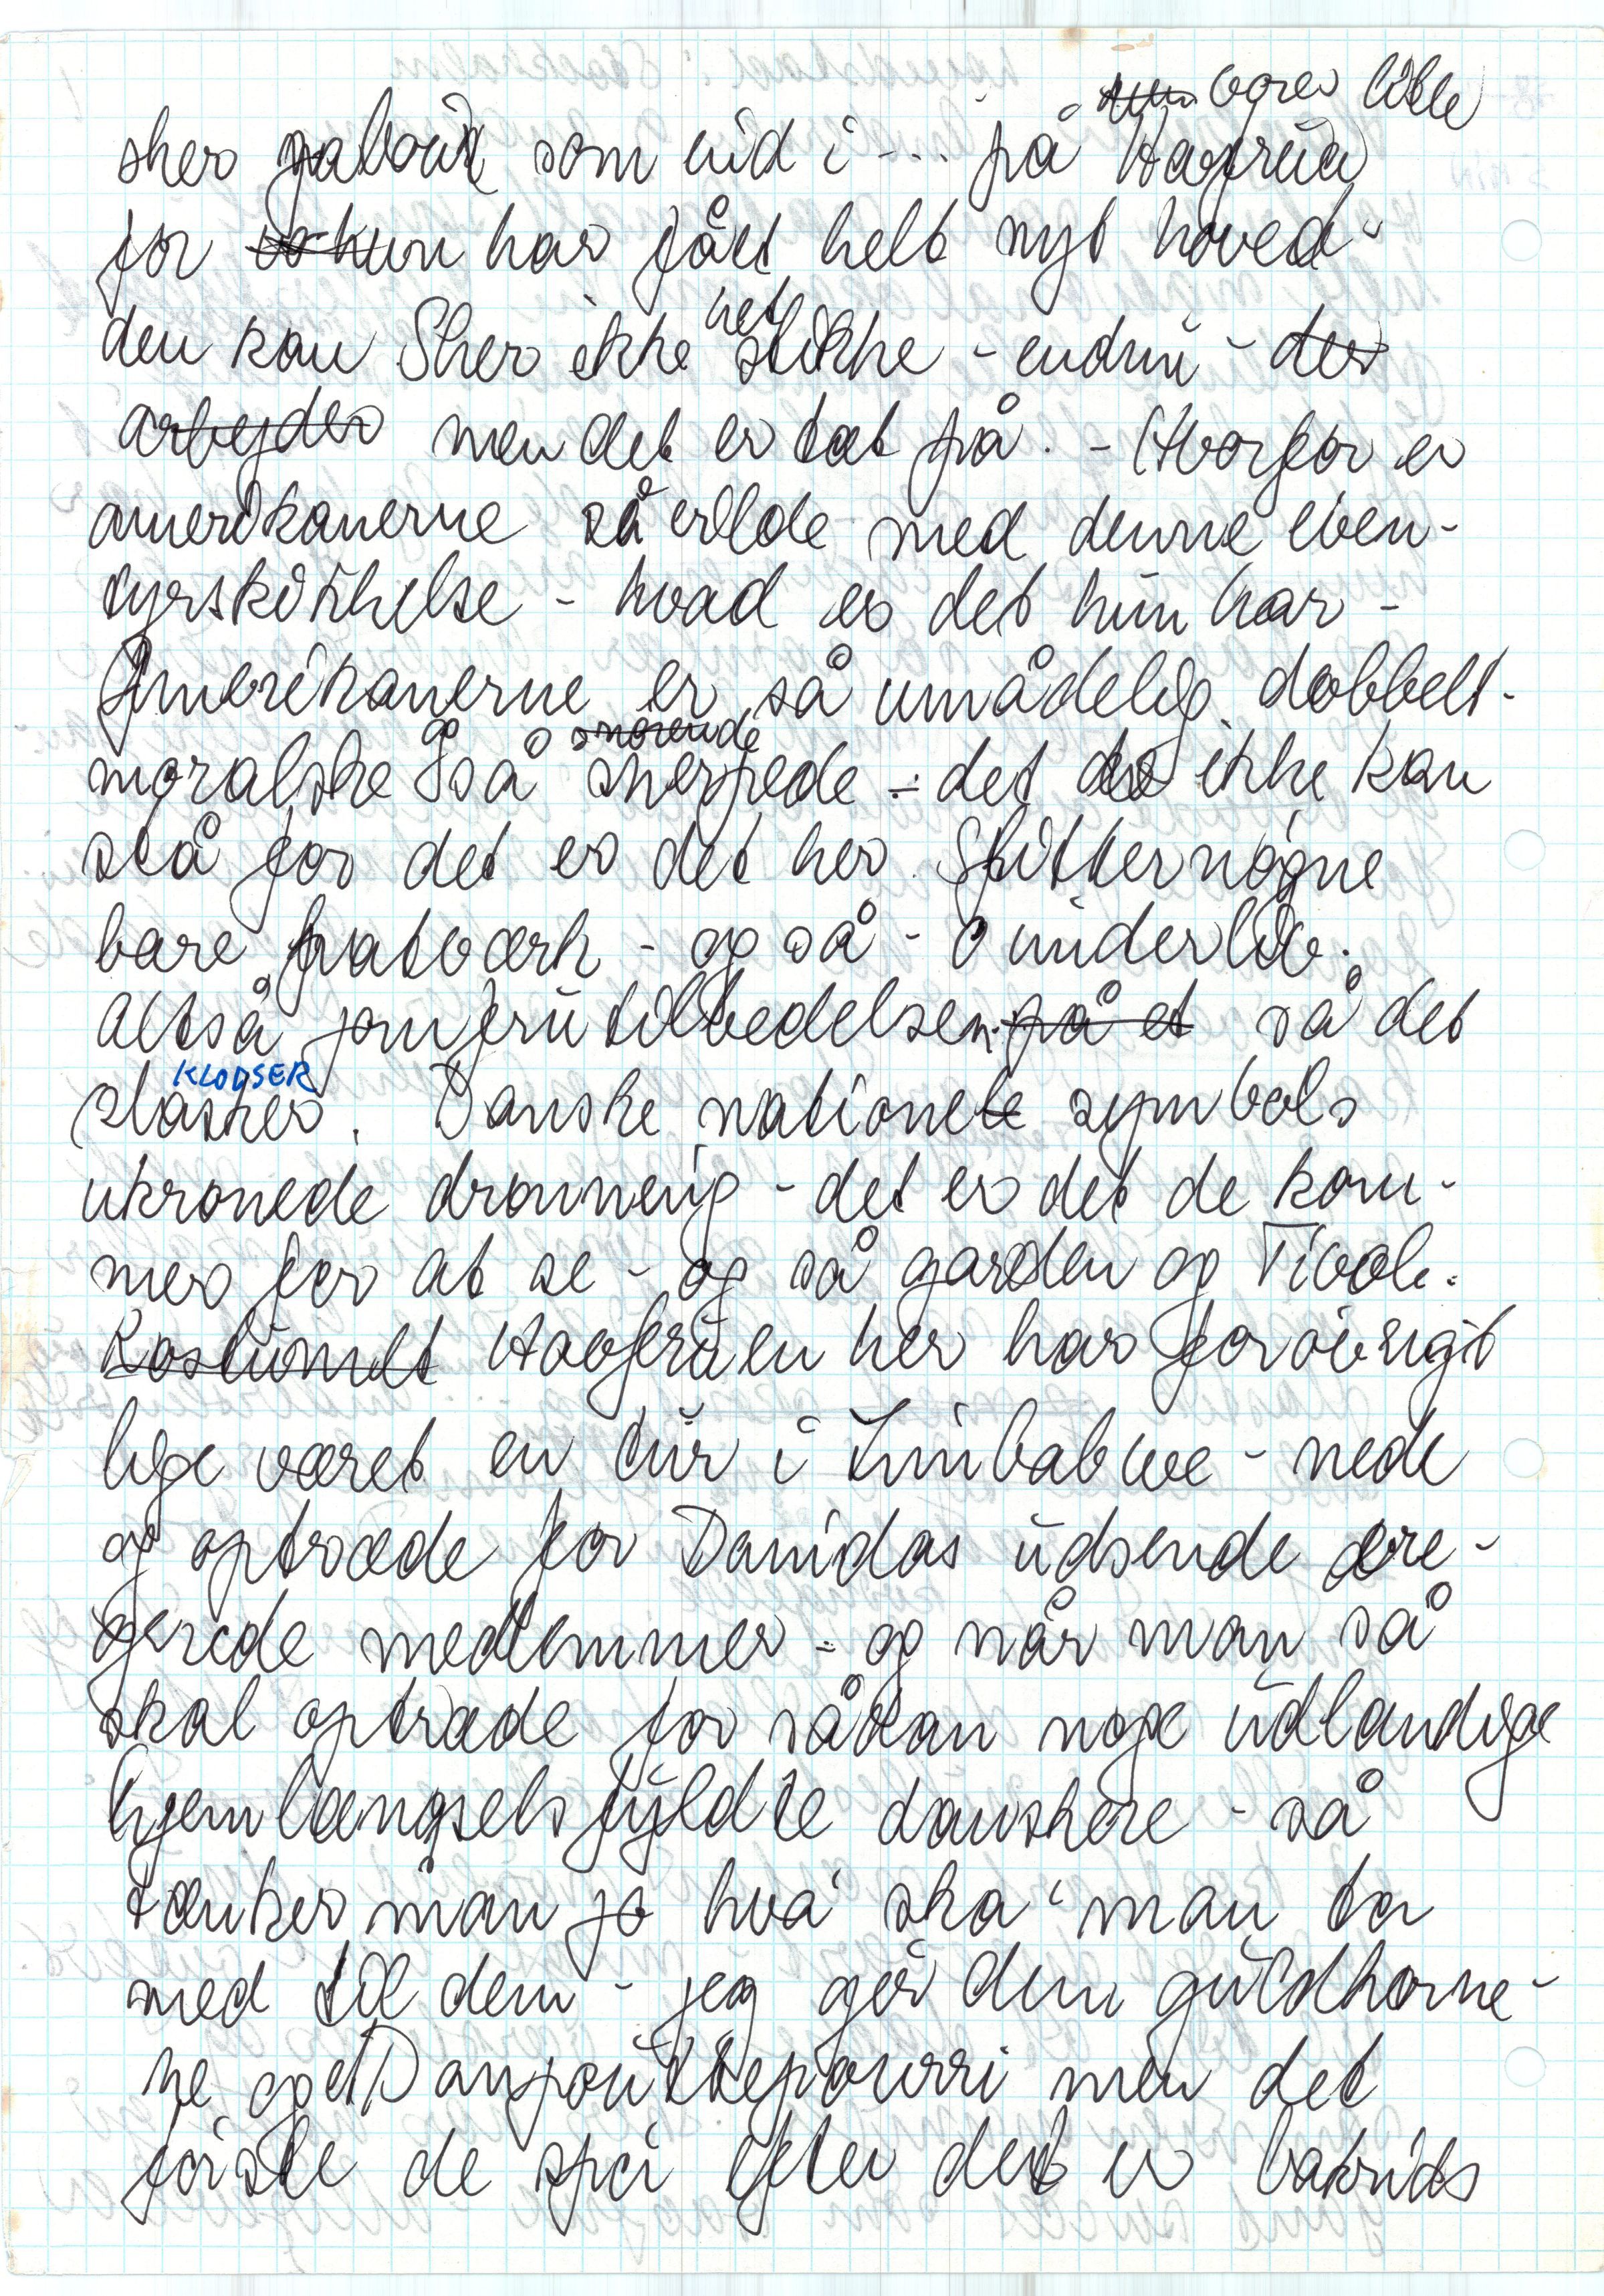 vores lille
Havfrue
for hun har fået helt nyt hoved -
den kan Sher ikke het slikke - endnu - der
arbejder men det er tæt på. - Hvorfor er
amerikanerne så vilde med denne even-
tyrskikkelse - hvad er det hun har -
Amerikanerne er så umådelig dobbelt-
moralske og så snerpede - det de ikke kan
stå for det er det her splitternøgne
bare patværk - og så - 0 underliv.
Altså jomfrutilbedelsen på et så det
KLODSER
slasker. Danske nationale symbols
ukronede dronning - det er det de kom-
mer for at se - og så garden og Tivoli.
Kostumet Havfruen her har forøvrigt
lige været en tur i Zimbabwe - nede
og optræde for Danidas udsende ære-
gerede medlemmer - og når man så
skal optræde for sådan noge udlandige
hjemlængselsfyldte danskere - så
tænker man jo hva' ska' man ta
med til dem - jeg gør dem guldhorne-
ne og et Danpouttepourri men det
første de spø'r efter det er